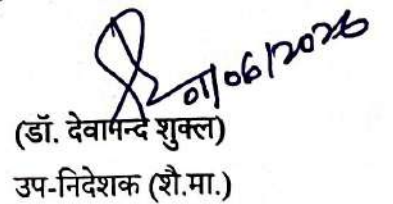 01/06/2026
(डॉ. देवानन्द शुक्ल)
उप-निदेशक (शै.मा.)